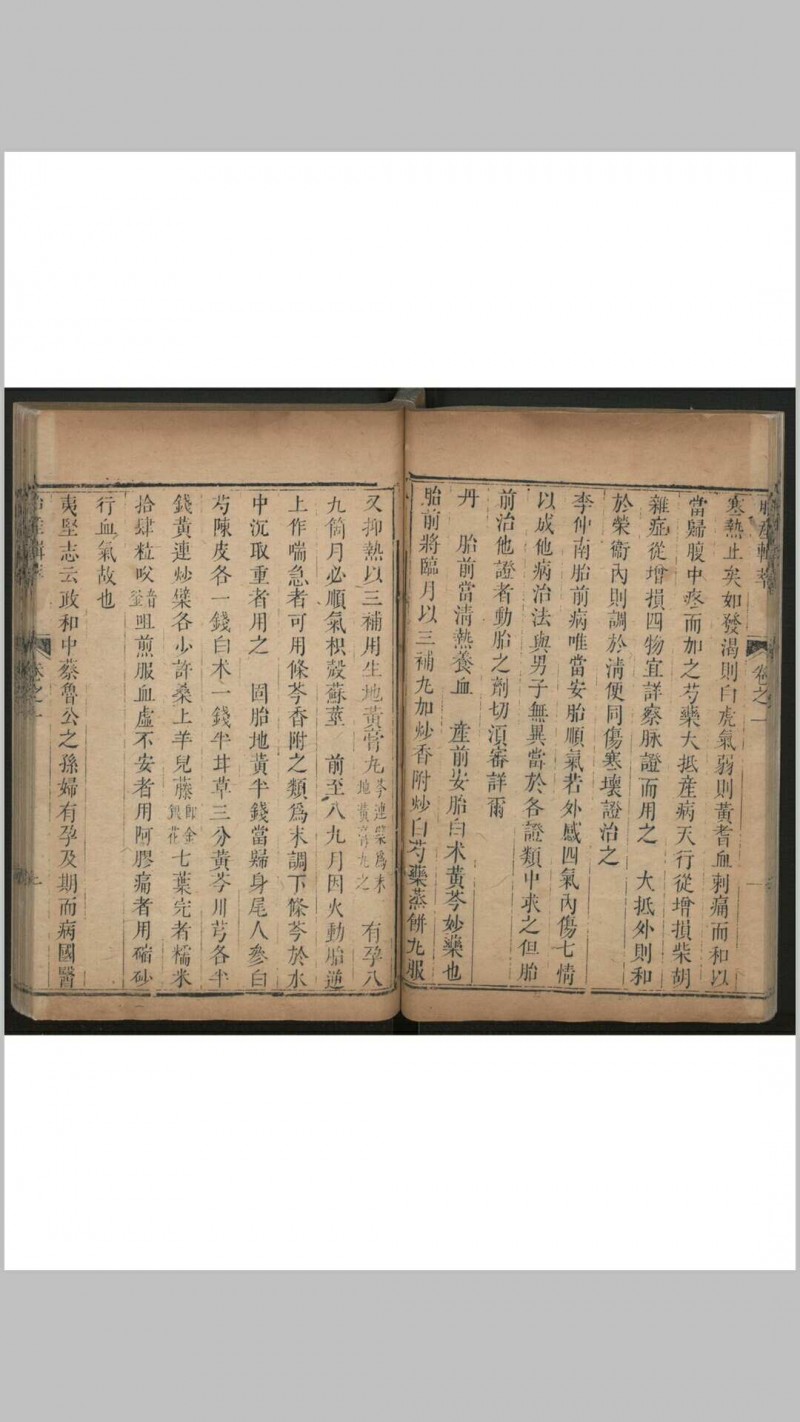 卷之一
寒熱止矣如發渴則白虎氣弱則黃耆血刺痛而和以
當歸腹中疼而加之芍藥大抵産病天行從增損柴胡
雜症從增損四物宜詳察脉證而用之 大抵外則和
於榮衞內則調於清便同傷寒壞證治之
李仲南胎前病唯當安胎順氣若外感四氣內傷七情
以成他病治法與男子無異當於各證類中求之但胎
前治他證者動胎之劑切須審詳爾
丹 胎前當淸熱養血 産前安胎白术黃芩妙藥也
胎前將臨月以三補丸加炒香附炒白芍藥蒸餠丸服
又抑熱以三補用生地黃膏丸芩連蘗爲末地黃膏丸之 有孕八
九箇月必順氣枳殼蘇莖 前至八九月因火動胎逆
上作喘急者可用條芩香附之類爲末調下條芩於水
中沉取重者用之 固胎地黃半錢當歸身尾人參白
芍陳皮各一錢白术一錢半甘草三分黃芩川芎各半
錢黃連炒蘗各少許桑上羊兒藤卽金銀花七葉完者糯米
拾肆粒㕮音釜咀煎服血虛不安者用阿膠痛者用縮砂
行血氣故也
夷堅志云政和中蔡魯公之孫婦有孕及期而病國醫
卷之一